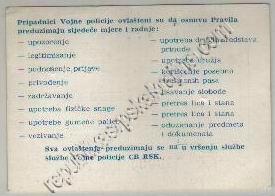 Pripadnici Vojne policije ovlašteni su da na osnovu Pravila
preduzimaju sljedeće mjere i radnje:
- upozorenje
- legitimisanje
- podnošenje prijave
- privođenje
- zadržavanje
- upotreba fizičke snage
- upotreba gumene palice
- vezivanje
- upotreba drugih sredstava
prinude
- upotreba oružja
- korišćenje posebno
dresiranih pasa
- lišavanje slobode
- pretres lica i stana
- pretres lica i stana
- oduzimanje predmeta
i dokumenata
Sva ovlaštenja preduzimaju se na u vršenju službe
službe Vojne policije CB RSK.